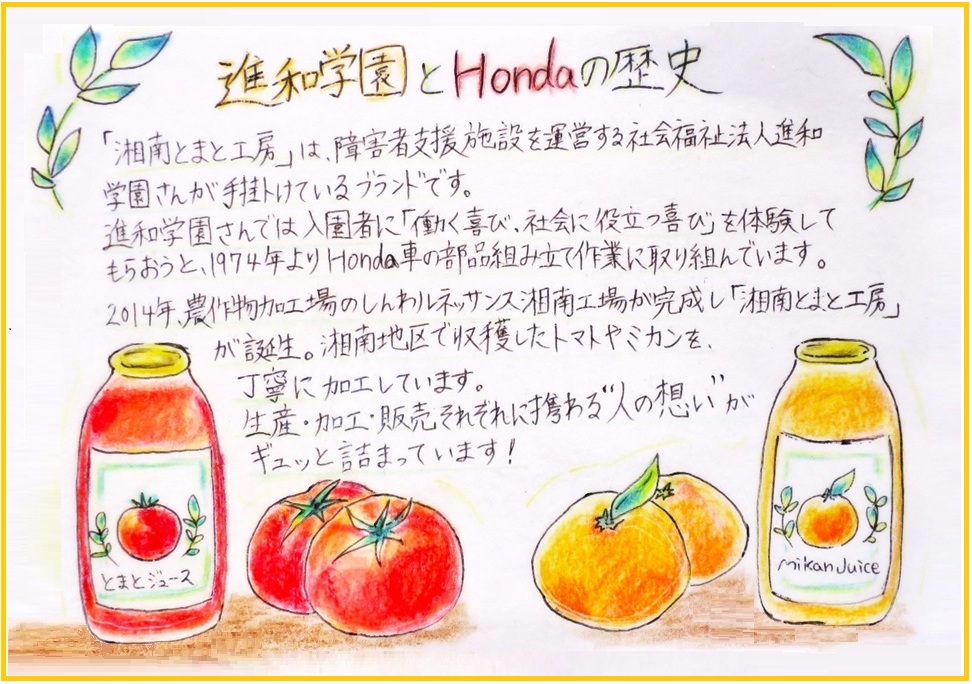 進和学園とHondaの歴史
「湘南とまと工房」は、障害者支援施設を運営する社会福祉法人進和
学園さんが手掛けているブランドです。
進和学園さんでは入園者に「働く喜び、社会に役立つ喜び」を体験して
もらおうと、1974年よりHonda車の部品組み立て作業に取り組んでいます。
2014年、農作物加工場のしんわルネッサンス湘南工場が完成し「湘南とまと工房」
が誕生。湘南地区で収穫したトマトやミカンを、
丁寧に加工しています。
生産・加工・販売それぞれに携わる“人の想い”が
ギュッと詰まっています!
とまとジュース
Mikan Juice